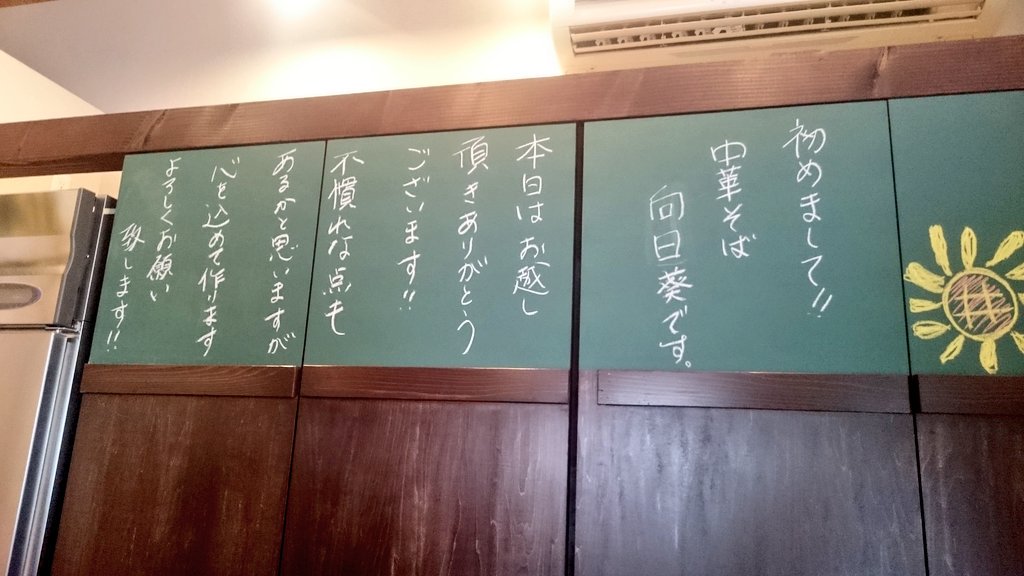 初めまして!!
中華そば
向日葵です。
本日はお越し
頂きありがとう
ございます!!
不慣れな点も
あるかと思いますが
心を込めて作ります
よろしくお願い
致します!!